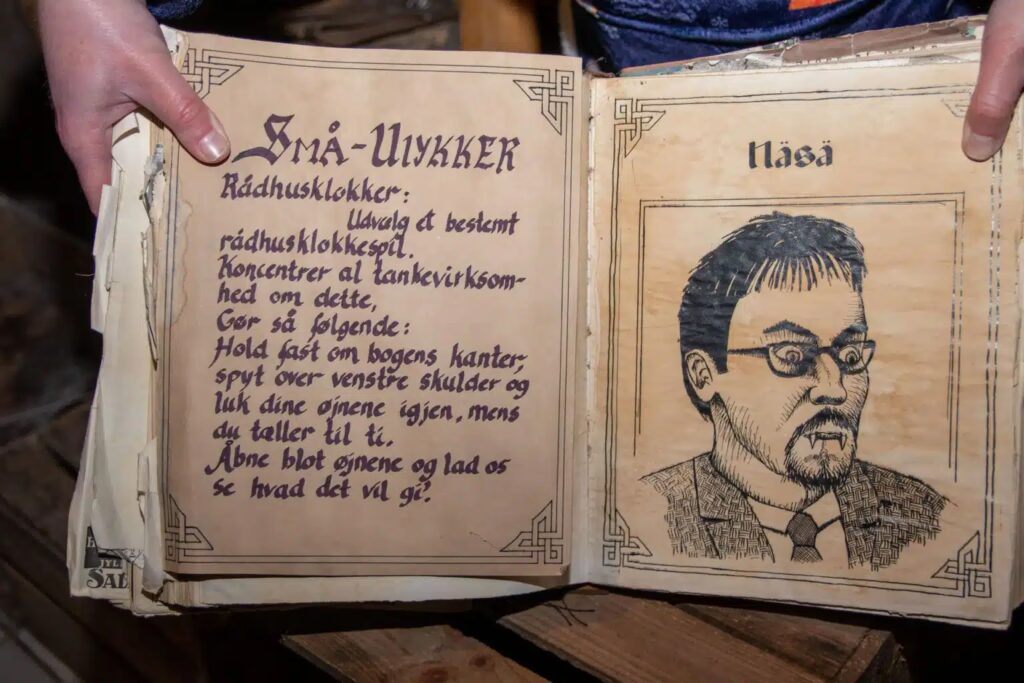 SMÅ-UlYKKER
Rådhusklokker:
Udvalg et bestemt
rådhusklokkespil.
Koncentrer al tankevirksom-
hed om dette,
Gør så følgende:
Hold fast om bogens kanter,
spyt over venstre skulder og
luk dine øjnene igjen, mens
du tæller til ti.
Åbne blot øjnene og lad os
se hvad det vil gi?
Näsä
SAL